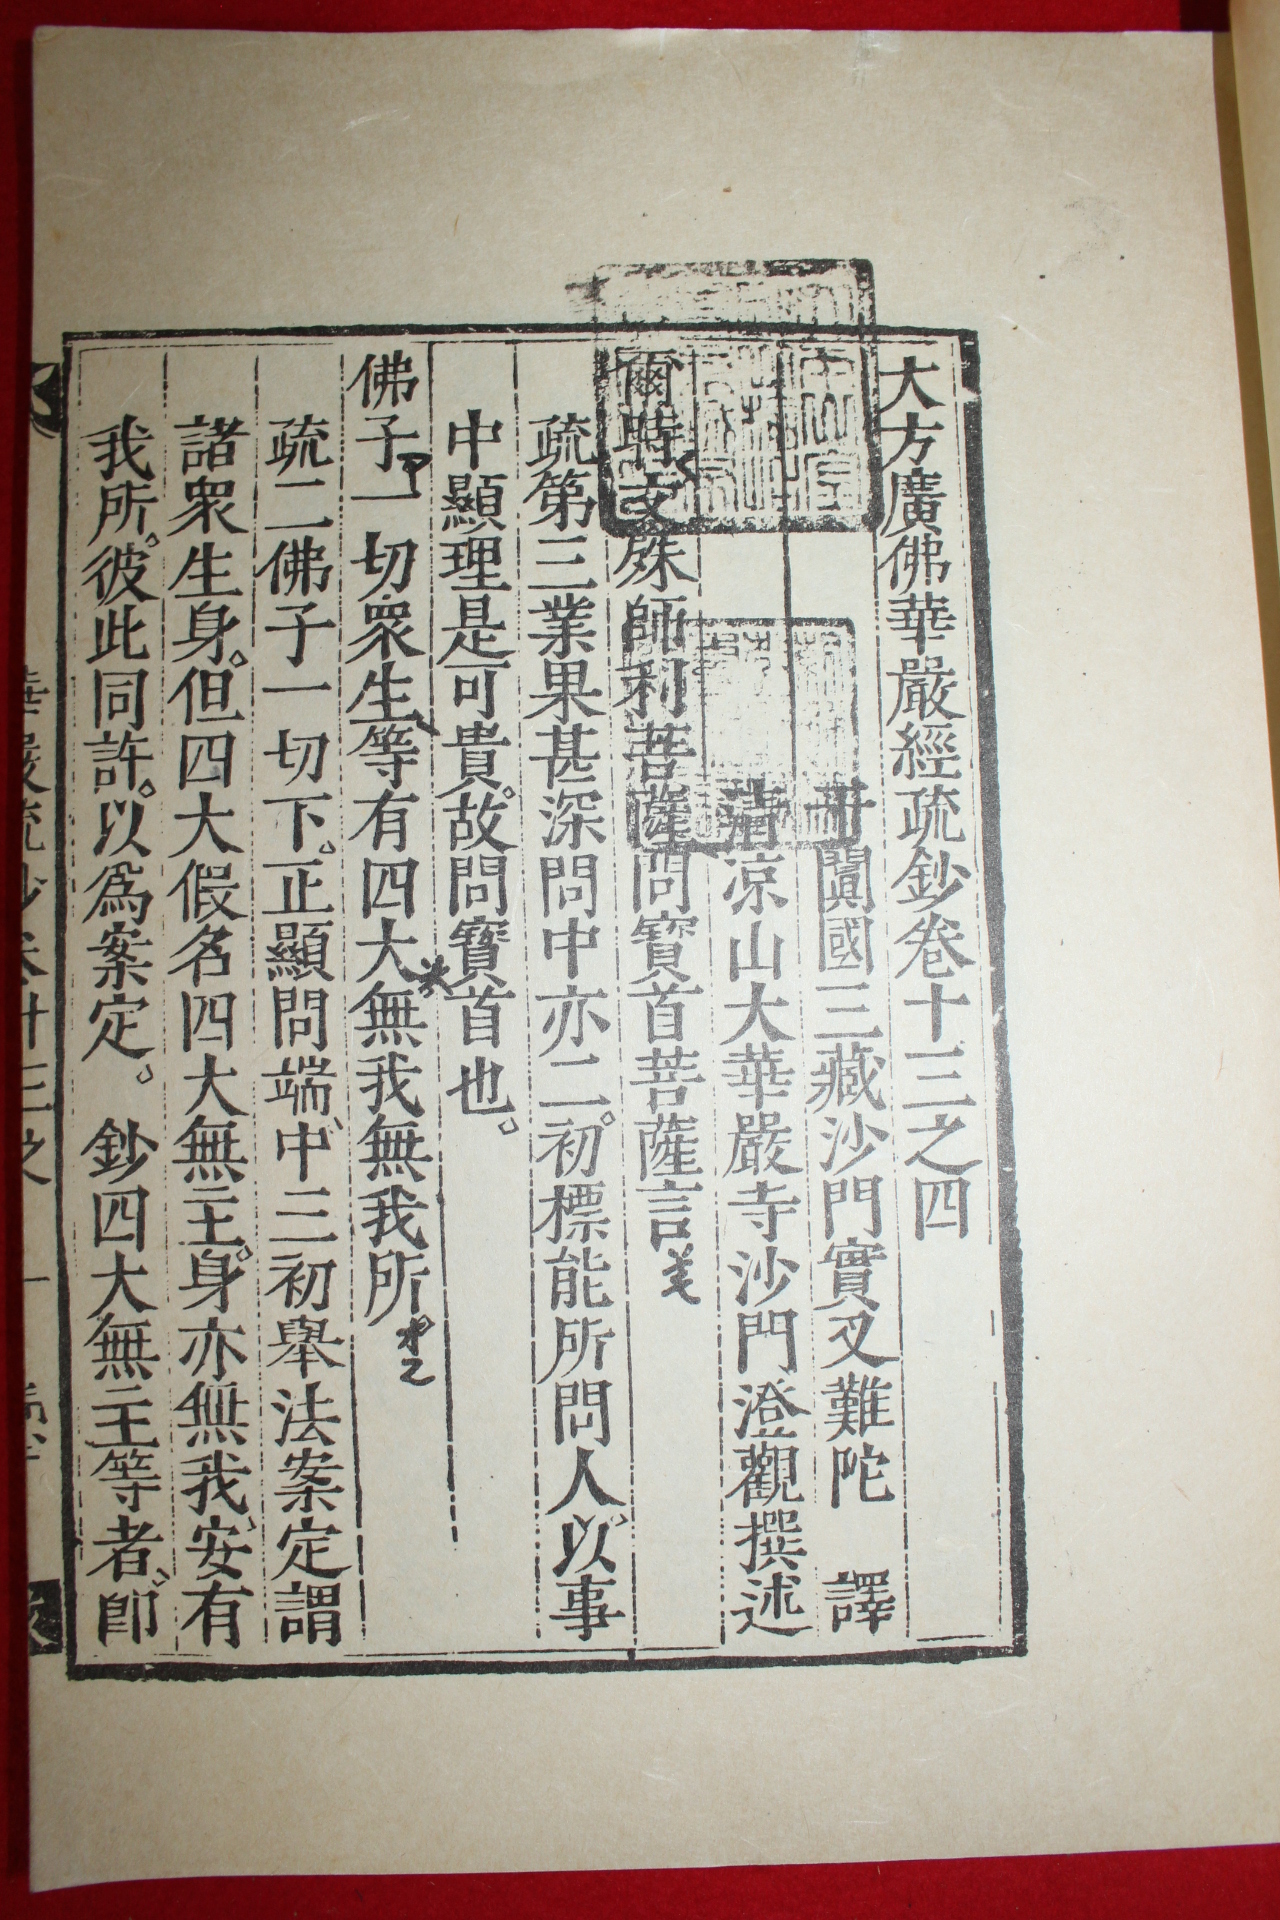 大方廣佛華嚴經疏鈔卷十三之四
于闐國三藏沙門實叉難陀　譯
清涼山大華嚴寺沙門澄觀撰述
爾時文殊師利菩薩問寶首菩薩言
疏第三業果甚深問中亦二。初標能所問人以事
中顯理是可貴。故問寶首也。
佛子一切衆生等有四大無我無我所
疏二佛子一切下。正顯問端、中三初舉法案定謂
諸衆生身。但四大假名四大無主。身亦無我、安有
我所。彼此同許。以爲案定。　鈔四大無主等者、卽
華嚴疏鈔卷十三之　一